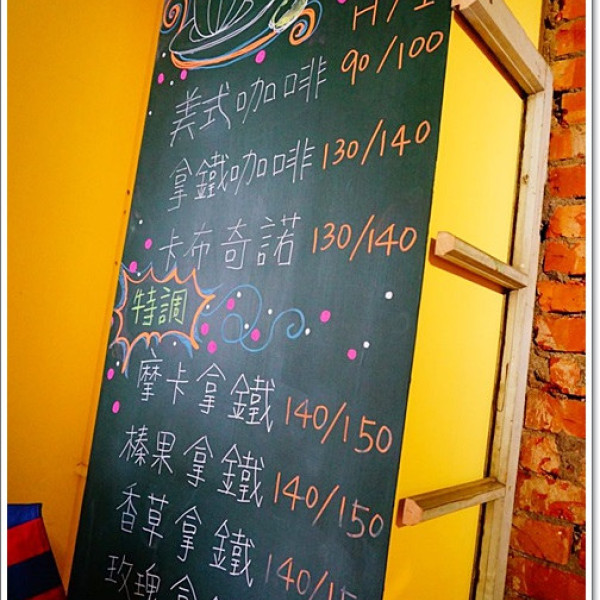 H/I
美式咖啡 90/100
拿鐵咖啡 130/140
卡布奇諾 130/140
特調
摩卡拿鐵 140/150
榛果拿鐵 140/150
香草拿鐵 140/15
玫瑰拿